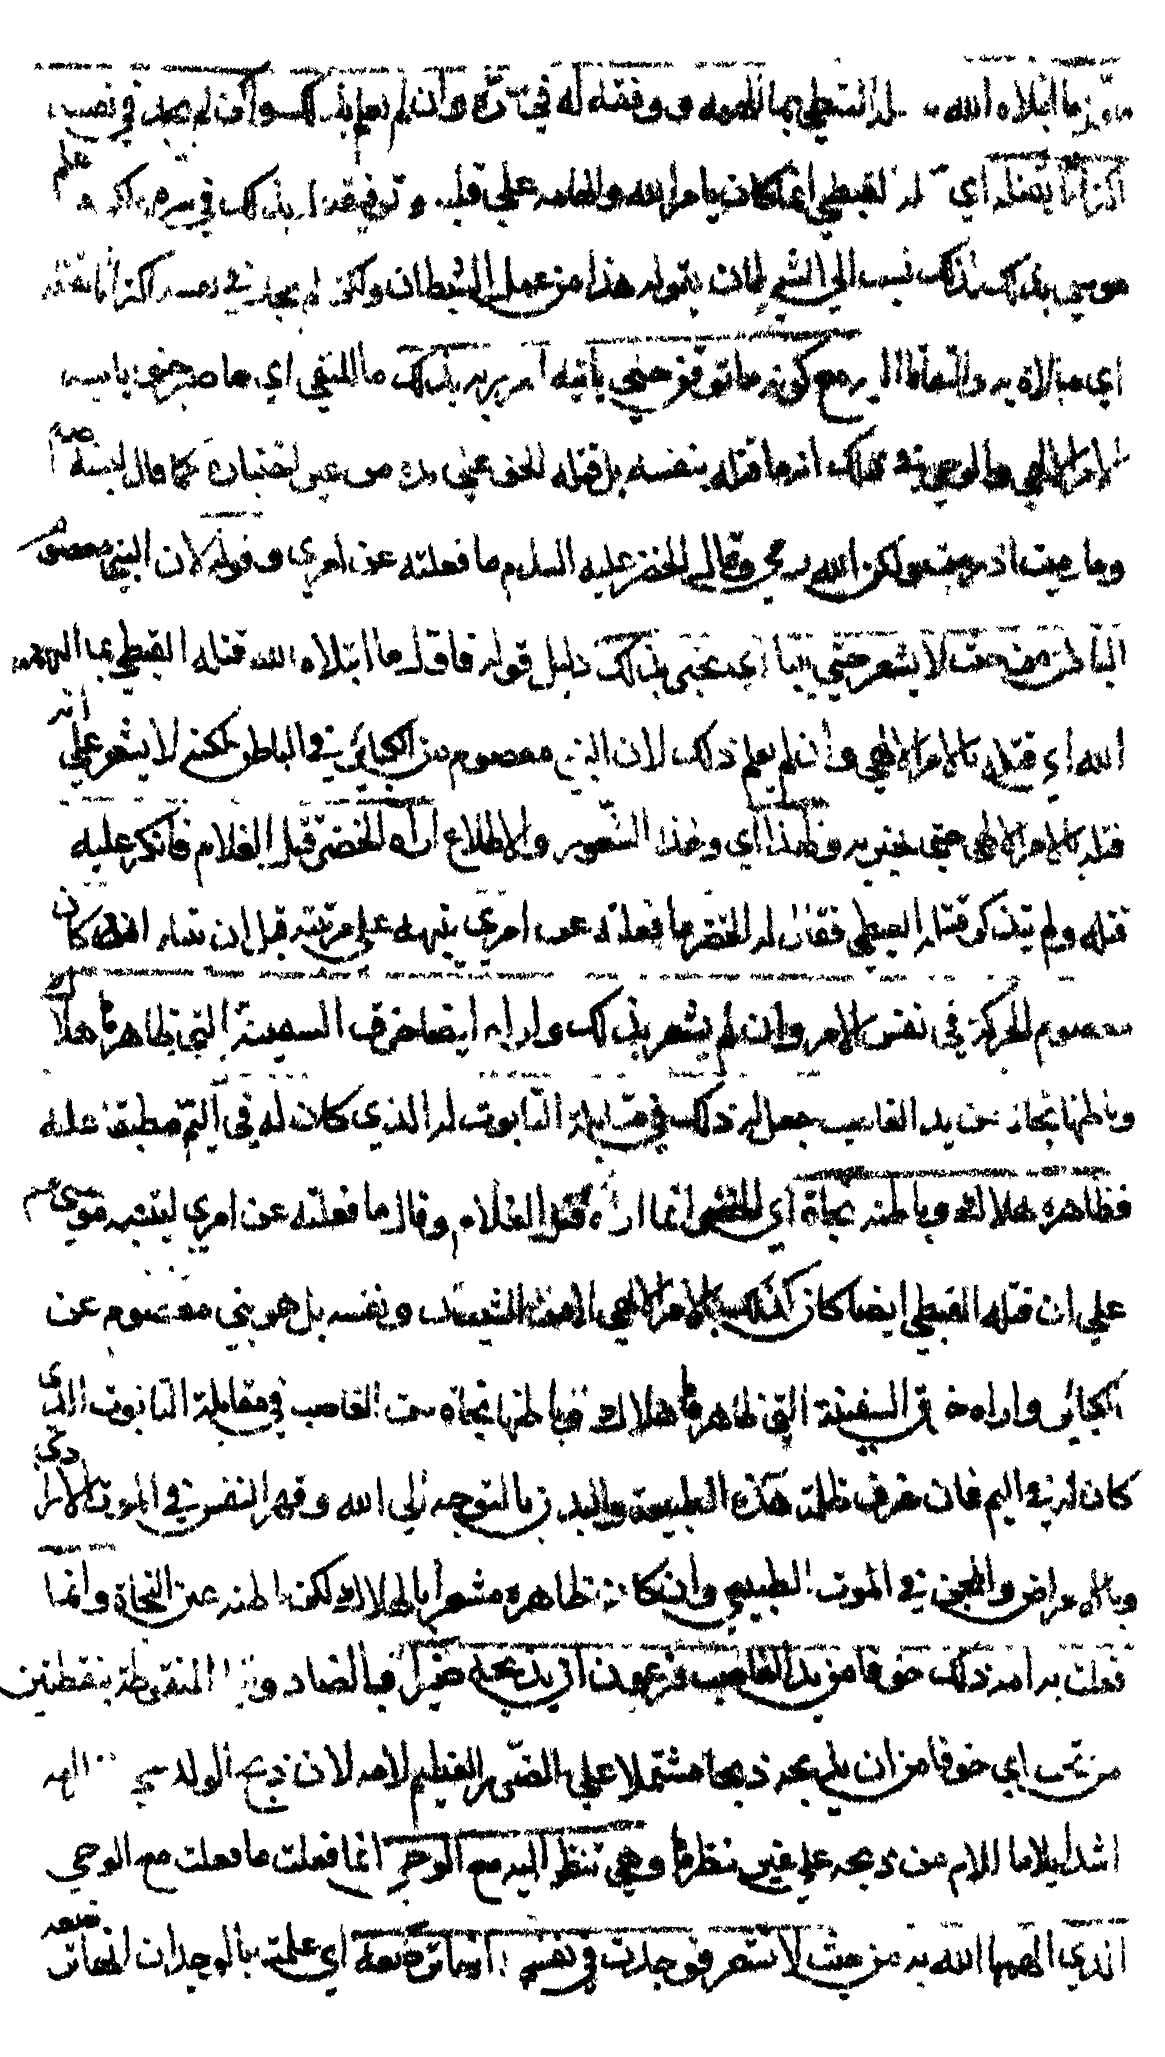 ما ابتلاه الله القبطي بما الهمه ووفقه له في سره وان لم يعلم بذلك ولكن لم يجد في نفسه
اكتراثا بقتله اي القبطي انما كان بامر الله والهامه على قلبه وتوفيقه له بذلك في سره ولم يعلم
موسى بذلك لذلك نسب الى الشيطان بقوله هذا من عمل الشيطان ولكن لم يجد في نفسه اكتراثا بقتله
اي مبالاة به والتفاتا اليه مع كونه ما توقف حتى ياتيه امر ربه بذلك ما للنفي اي ما صبر حتى ياتيه
الامر الالهي والوحي في ذلك انه ما قتله بنفسه بل قتله الحق على يده من غير اختياره كما قال لنبيه صم
وما رميت اذ رميت ولكن الله رمى وقال الخضر عليه السلام ما فعلته عن امري وقوله لان النبي معصوم
الباطن من حيث لا يشعر حتى ينبا اي يخبر بذلك دليل قوله فاول ما ابتلاه الله قتله القبطي بما الهمه
الله اي قتله بالامر الالهي وان لم يعلم ذلك لان النبي معصوم من الكبائر في الباطن لكنه لا يشعر على انه
قتله بالامر الالهي حتى يخبر به ولهذا اي ولهذا الشعور والاطلاع اراه الخضر قتل الغلام فانكر عليه
قتله ولم يتذكر قتله القبطي فقال له الخضر ما فعلته عن امري ينبهه على مرتبته قبل ان ينبا انه كان
معصوم الحركة في نفس الامر وان لم يشعر بذلك واراه ايضا خرق السفينة التي ظاهرها هلاك
وباطنها نجاة من يد الغاصب جعل له ذلك في مقابلة التابوت له الذي كان له في اليم مطبقا عليه
فظاهره هلاك وباطنه نجاة اي الخضر انما اراه قتل الغلام وقال ما فعلته عن امري لينبه موسى عم
على ان قتله القبطي ايضا كان كذلك بالامر الالهي لا من الشيطان ونفسه بل هو نبي معصوم عن
الكبائر واراه خرق السفينة التي ظاهرها هلاك وباطنها نجاة من الغاصب في مقابلة التابوت الذي
كان له في اليم فان خرق ظلمة هذه الطبيعة والبدن بالتوجه الى الله وقهر النفس في الموت الارادي
وبالامراض والمحن في الموت الطبيعي وان كان ظاهره مشعرا بالهلاك لكن باطنه عين النجاة وانما
فعلت به امه ذلك خوفا من يد الغاصب فرعون ان يذبحه ضيرا بالضاد المنقوطة بنقطتين
من تحت اي خوفا من ان يذبحه ذبحا مشتملا على الضير العظيم لامه لان ذبح الولد اليه
اشد ايلاما للام من ذبحه على عين نظرها وهي تنظر اليه مع الوحي انما فعلت ما فعلت مع الوحي
الذي الهمها الله به من حيث لا تشعر فوجدت في نفسها انها ترضعه اي علمت بالوجدان انها ترضعه